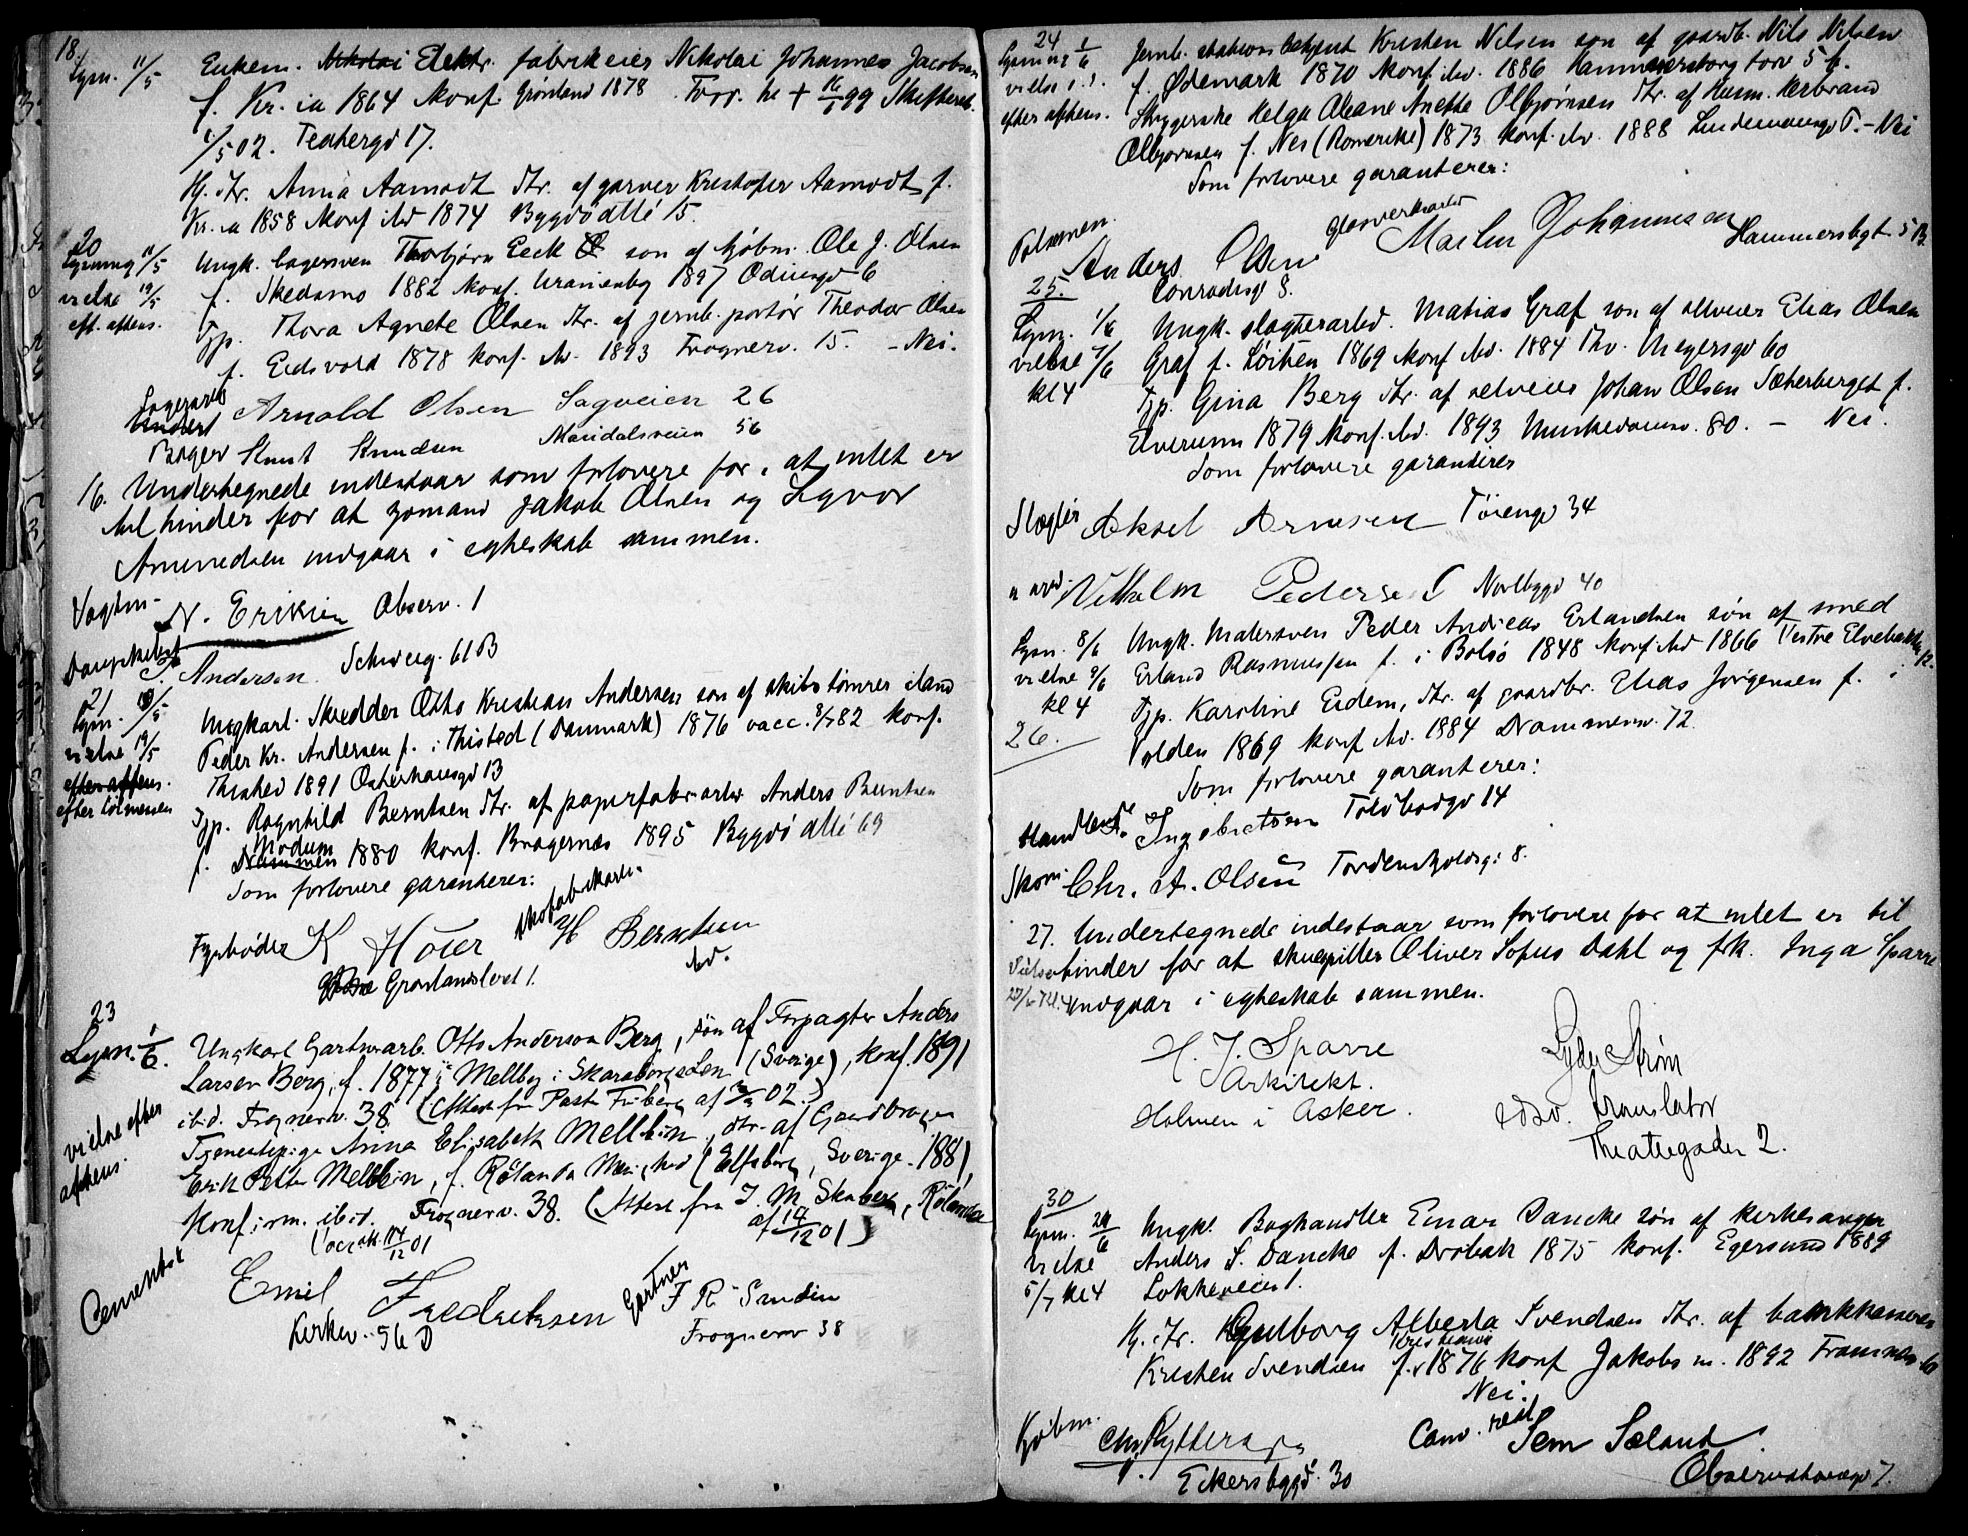 18.
Lysn. 11/5
Enkem. Nikolai Elektr. fabrikeier Nikolai Johannes Jacobsen
f. Kr.ia 1864 Konf. Grønland 1878 Forr. he + 16/1 99 Skifteret.
1/5 02. Tidthergd 17.
Hj. dtr. Anna Aamodt dtr. af garver Kristofer Aamodt f.
Kr. ia 1858 Konf. ibd 1874 Bygdø allé 15.
20
Lysning 11/5
vielse 19/5
eft. aftens.
Ungk. bagersven Thorbjørn Eeck son af kjøbm. Ole J. Olsen
f. Skedsmo 1882 Konf. Uranienbg 1897 Odinsgd 6
Tjp. Thora Agnete Olsen dtr. af jernb. portør Theodor Olsen
f. Eidsvold 1878 konf. ibd. 1893 Frognerv. 15. - Nei.
Lagerarb
Arnold Olsen Sagveien 26
Bager Knut Knudsen Maridalsveien 56
16. Undertegnede indestaar som forlovere for, at intet er
til hinder for at gymand Jakob Olsen og Sigvor
Amundsen indgaar i egteskab sammen.
Vagtm. N. Eriksen Observ. 1
Dampskibsf
Andersen. Schweig. 61 B
21
Lysn. 18/5
vielse 19/5
efter aftens.
efter tolvmessen
Ungkarl. Skrædder Otto Kristian Andersen son af skibstømrer iland
Peder Kr. Andersen f. i Thisted (Danmark) 1876 vacc. 8/7 82 konf.
Thisted 1891 Osterhausgd 13
Tjp. Ragnhild Berntsen dtr. af papirfabr-arbr Anders Berntsen
f. Drammen Modum 1880 konf. Bragernæs 1895 Bygdø allé 69
Som forlovere garanterer:
Fyrbøder K Höier Skofabrikarb. H Berntsen
Grønlandslert 1. ibd.
23
Lysn. 1/6.
vielse efter
aftens.
Ungkarl Gartnerarb. Otto Anderson Berg, søn af Forpagter Anders
Larsen Berg, f. 1877 i Mellby i Skaraborgs Len (Sverige), Konf. 1891
ibid. Frognerv. 38 (Attest fra Past. Friberg af 3/3 02.)
Tjenestepige Anna Elisabeth Mellbin, dtr. af Gaardbruger
Erik Petter Mellbin, f. Rölanda (Elfsborg, Sverige) 1881,
Konfirm. ibid. Frognerv. 38. (Attest fra J. M. Skaberg, Rölanda
af 14/12 01)
Cementst
Emil Fredriksen
Kirkev. 56 D
Gartner
F R Sandin
Frognerv 38
24
Lysning 1/6
vielse i. d.
efter aftens.
Jernb. stations betjent Kristen Nilsen son af gaardb. Nils Nilsen
f. Ødemark 1870 Konf. ibd. 1886 Hammersborg torv 5 b.
Strygerske Helga Oleane Anette Olbjørnsen dtr. af Husm. Herbrand
Olbjørnsen f. Nes (Romerike) 1873 konf. ibd. 1888 Lindemansgd 7. - Nei
Som forlovere garanterer:
Pølsemm.
Anders Olsen
Conradisgd 8.
glasverksarbr
Martin Johannesen
Hammersbgt 5 B.
25.
Lysn. 1/6
vielse 7/6
kl 4
Ungk. slagterarbd. Matias Graf son af selveier Elias Olsen
Graf f. Løiten 1869 Konf. ibd. 1884 Thv. Meyersgd 60
Tjp. Gina Berg dtr. af selveier Johan Olsen Sæterberget f.
Elverum 1879 Konf. ibd. 1893 Munkedamsv. 80. - Nei.
Som forlovere garanterer
Slagter Aksel Arnesen Tøiengd 34
" arb. Vilhelm Pedersen Norbygd 40
Lysn. 8/6
vielse 9/6
kl 4
26.
Ungk. Malersven Peder Andreas Erlandsen søn af smed
Erland Rasmussen f. i Bolsø 1848 Konf. ibd 1866 Vestre Elvebakke 12.
Tjp. Karoline Eidem, dtr. af gaardbr. Elias Jørgensen f. i
Volden 1869 konf ibd. 1884 Drammensv. 72.
Som forlovere garanterer:
Handlende. Ingebretsen Toldbodgd 14
Skom. Chr. A. Olsen Tordenskjoldsg: 8.
27. Undertegnede indestaar som forlovere for at intet er til
hinder for at skuespiller Oliver Sofus Dahl og frk. Inga Sparre
indgaar i egteskab sammen.
H. J. Sparre
Arkitekt.
Holmen i Asker.
Lyder Strøm
edsv. translatør
Theatergaden 2.
30
Lysn. 24/6
vielse
5/7 kl 4
Ungk. Boghandler Einar Dancke søn af Kirkesanger
Anders S. Dancke f. Drøbak 1875 konf. Egersund 1889
Løkkeveien 1.
Hj. dtr. Gudborg Alberta Svendsen dtr. af bankkasserer
Kristen Svendsen f. Kristiania 1876 konf Jakobs m. 1892
Nei.
Kjøbm. Chr
Eckersbggd. 30
Cand. real
Sem Sæland
Observatoriegd 7.